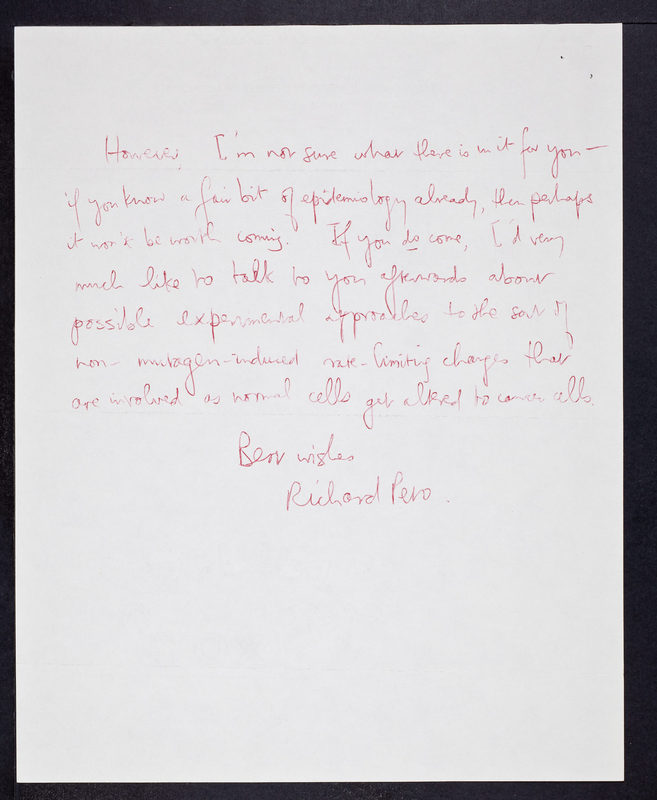 However, I'm not sure what there is in it for you —
if you know a fair bit of epidemiology already, then perhaps
it won't be worth coming. If you do come, I'd very
much like to talk to you afterwards about
possible experimental approaches to the sort of
non-mutagen-induced rate-limiting changes that
are involved as normal cells get altered to cancer cells.
Best wishes
Richard Peto.